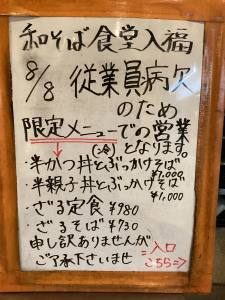 和そば食堂入福
8/8 従業員病欠
のため
限定メニューでの営業
となります。
・半かつ丼と(冷)ぶっかけそば
¥1,000
・半親子丼とぶっかけそば
¥1,000
・ざる定食 ¥980
・ざるそば ¥730
申し訳ありませんが
ご了承下さいませ
入口
こちら⇒